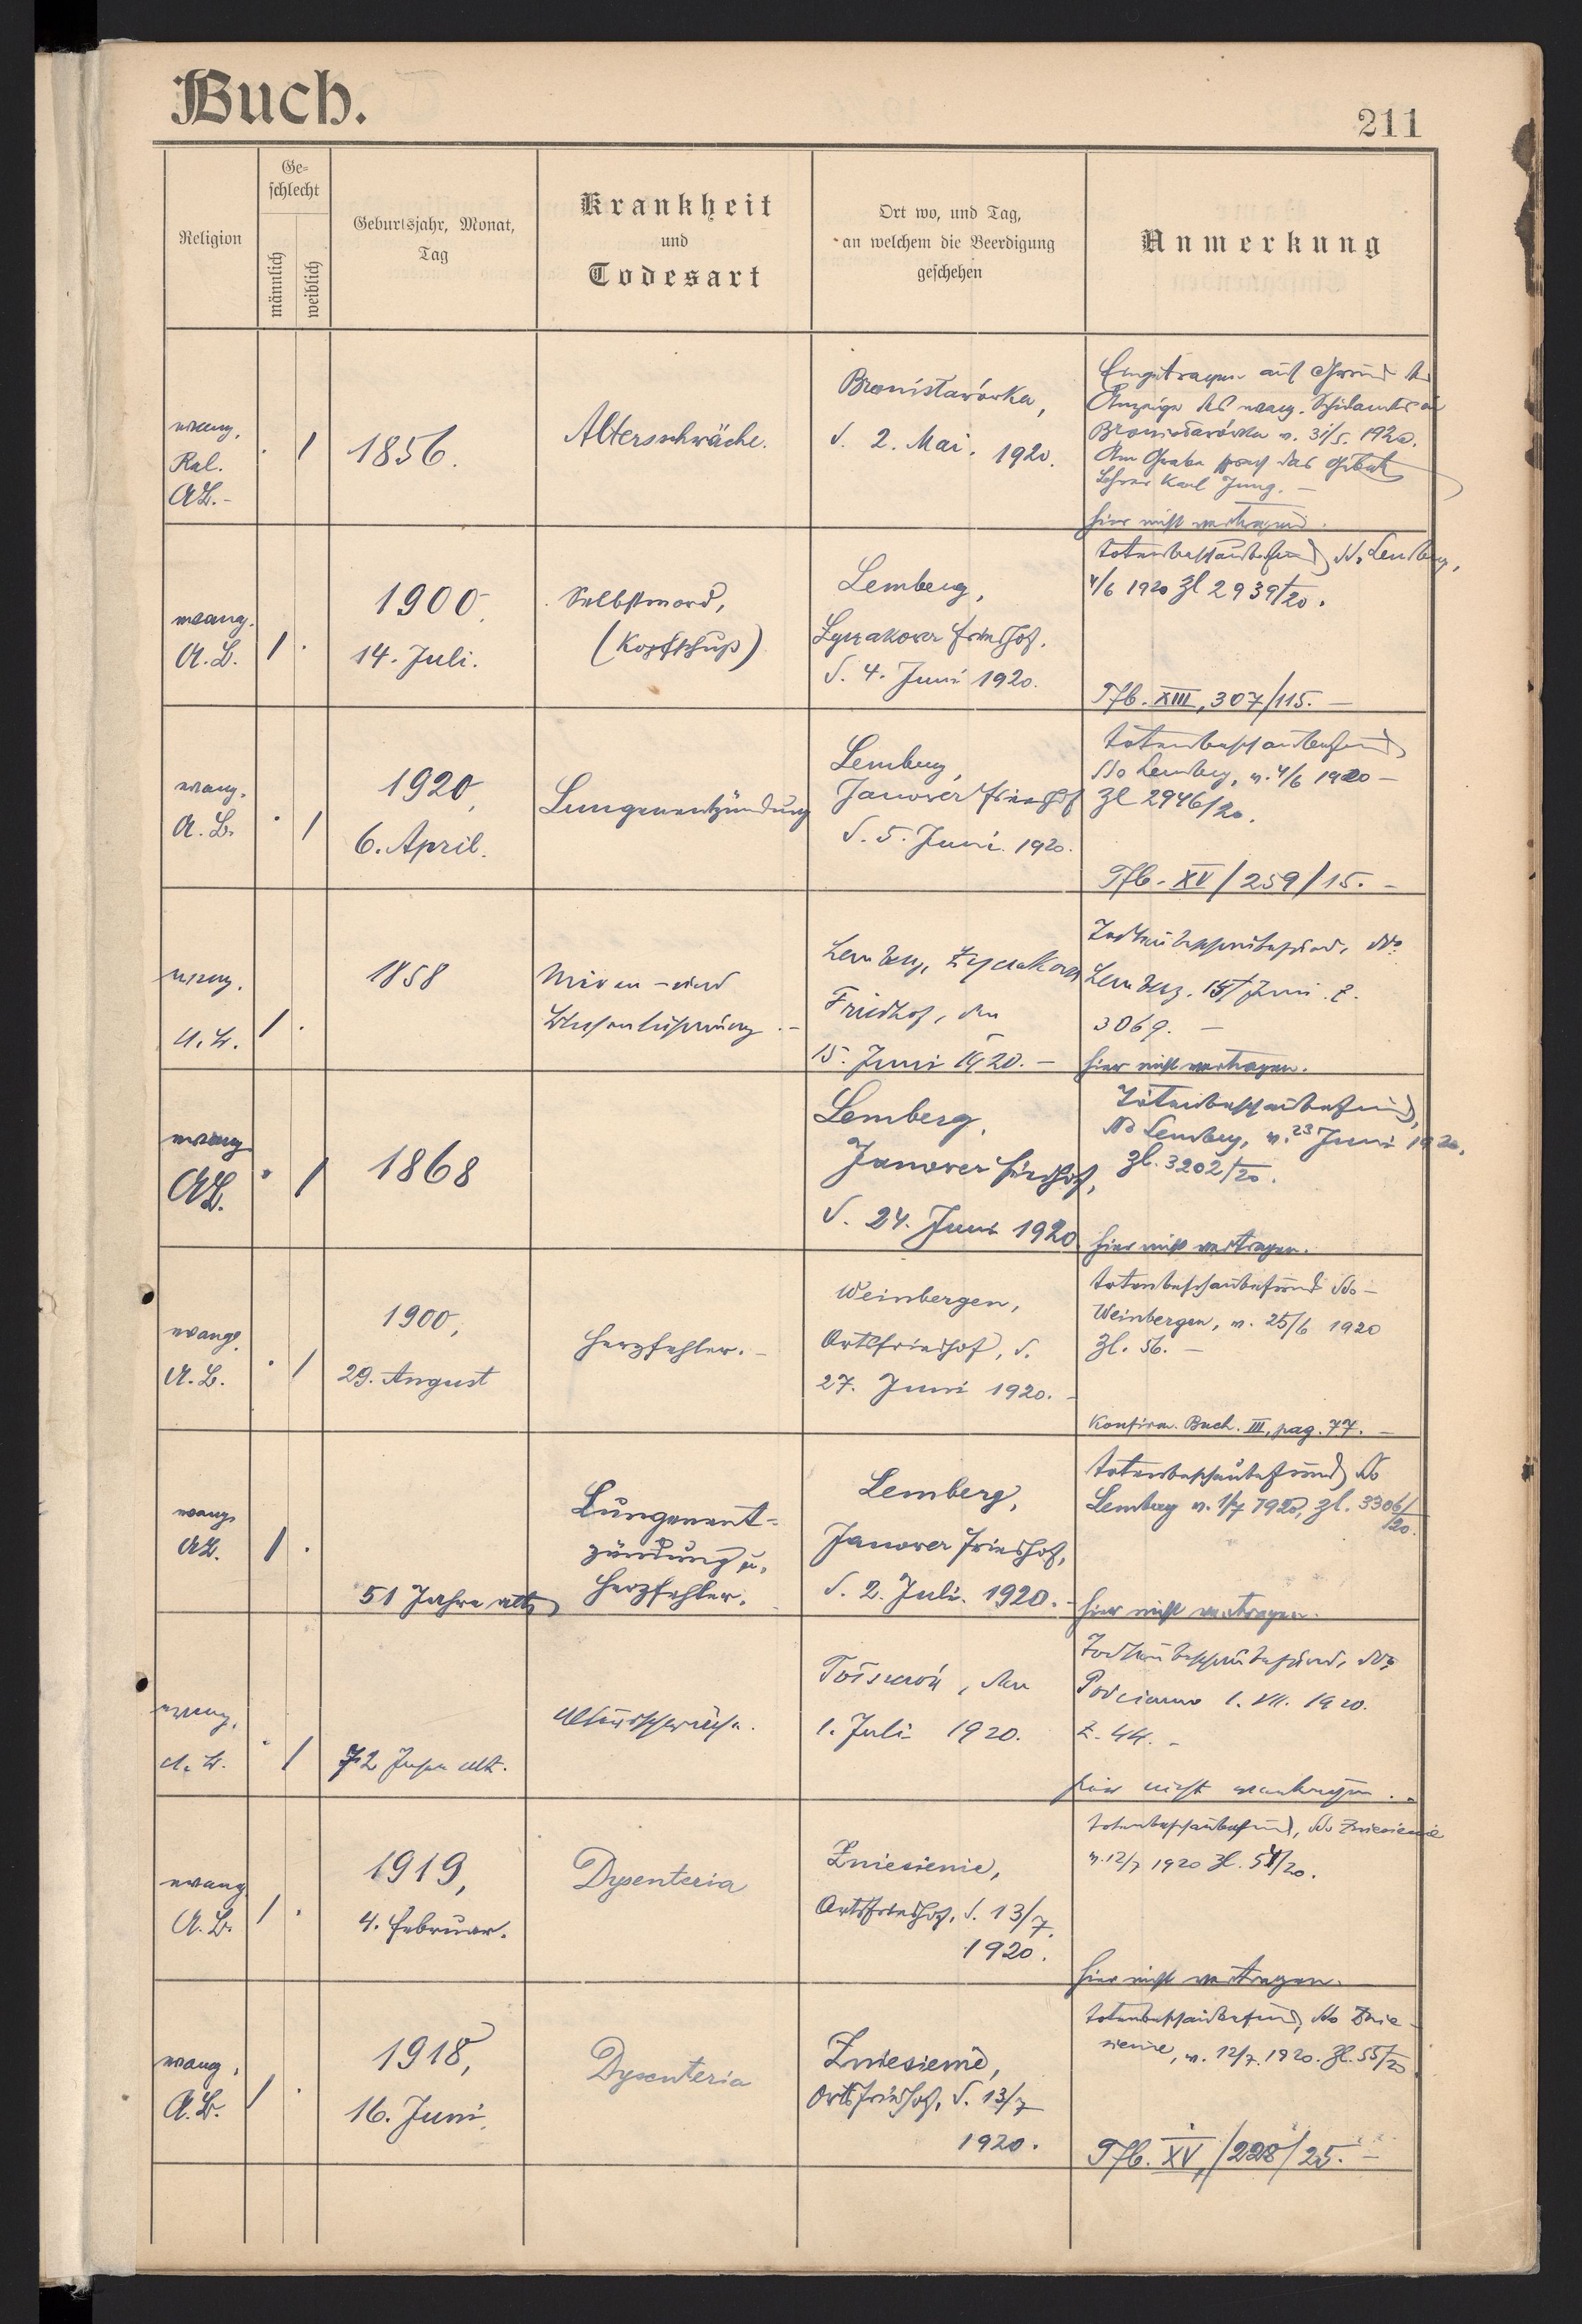 Buch.
211
Religion
Ge-
schlecht
männlich
weiblich
Geburtsjahr, Monat,
Tag
Krankheit
und
Todesart
Ort wo, und Tag,
an welchem die Beerdigung
geschehen
Anmerkung
evang.
Rel.
AB.-
· 1
1856.
Altersschwäche.
Bronisławówka,
d. 2. Mai. 1920.
Eingetragen auf Grund der
Anzeige des evang.
Bronisławówka v. 31/5. 1920.
Am Grabe sprach das Gebet
Lehrer Karl Jung. —
hier nicht vertragen.
evang.
A.B.
1 ·
1900.
14. Juli.
Selbstmord,
(Kopfschuß)
Lemberg,
Łyczakower Friedhof.
d. 4. Juni 1920.
Totenbeschaubefund ddo Lemberg,
4/6 1920 Zl 2939/20.
Tfb. XIII, 307/115. —
evang.
A.B.
· 1
1920,
6. April.
Lungenentzündung
Lemberg,
Janower Friedhof
d. 5. Juni. 1920.
Totenbeschaubefund
ddo Lemberg, v. 4/6 1920 —
Zl 2946/20.
Tfb. XV/259/15. —
evang.
A.B.
1 ·
1858
Nieren - und
Lemberg, Łyczakow
Friedhof, den
15. Juni 1920. —
Lemberg. 15/Juni. Z.
3069. —
hier nicht vertragen.
evang
AB.
· 1
1868
Lemberg,
Janower Friedhof,
d. 24. Juni 1920
Totenbeschaubefund,
ddo Lemberg, v. 23 Juni 1920,
Zl. 3202/20.
hier nicht vertragen.
evang.
A.B.
· 1
1900,
29. August
Herzfehler. —
Weinbergen,
Ortsfriedhof, d.
27. Juni 1920. —
Totenbeschaubefund ddo —
Weinbergen, v. 25/6 1920
Zl. 56. —
Konfirm. Buch. III, pag. 77. —
evang.
AB.
1 ·
51 Jahre alt
Lungenent-
zündung u.
Herzfehler.
Lemberg,
Janower Friedhof,
d. 2. Juli. 1920. —
Totenbeschaubefund ddo
Lemberg v. 1/7 1920, Zl. 3306/
120.
hier nicht vertragen.
evang.
A.B.
· 1
72 Jahre alt.
Altersschwäche.
, den
1. Juli 1920.
Totenbeschaubefund, ddo
1. VII. 1920.
Z. 44. —
hier nicht vertragen.
evang
A.B.
1 ·
1919,
4. Februar.
Dysenteria
Zniesienie,
Ortsfriedhof, d. 13/7.
1920.
Totenbeschaubefund, ddo Zniesienie
v. 12/7 1920 Zl. 51/20.
hier nicht vertragen.
evang.
A.B.
1 ·
1918,
16. Juni.
Dysenteria
Zniesienie,
Ortsfriedhof, d. 13/7
1920.
Totenbeschaubefund, ddo Znie-
sienie, v. 12/7. 1920. Zl. 55/20.
Tfb. XV,/228/25. —